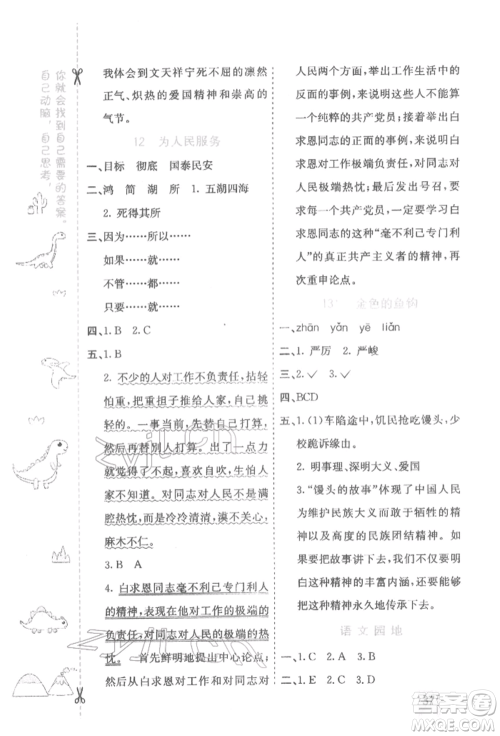 你就会找到自己需要的答案。
自己动脑，自己思考，
我体会到文天祥宁死不屈的凛然
正气、炽热的爱国精神和崇高的
气节。
12 为人民服务
一、目标 彻底 国泰民安
二、鸿 简 湖 所 1. 五湖四海
2. 死得其所
三、因为……所以……
如果……就……
不管……都……
只要……就……
四、1. B 2. C
五、1. B
2. 不少的人对工作不负责任，拈轻
怕重，把重担子推给人家，自己挑
轻的。一事当前，先替自己打算，
然后再替别人打算。出了一点力
就觉得了不起，喜欢自吹，生怕人
家不知道。对同志对人民不是满
腔热忱，而是冷冷清清，漠不关心，
麻木不仁。
3. A
4. 白求恩同志毫不利己专门利人
的精神，表现在他对工作的极端的
负责任，对同志对人民的极端的热
忱。 首先鲜明地提出中心论点，
然后从白求恩对工作、对同志对
人民两个方面，举出工作生活中
的反面的事例，指出这些人不能算
一个纯粹的共产党员。然后列举
白求恩同志的正面的事例，说明白
求恩同志对工作极端负责任，对同
志对人民极端热忱。最后提出，每
一个共产党员，一定要学习白
求恩同志的这种“毫不利己专门利
人”的真正共产主义者的精神，
再次重申论点。
13 金色的鱼钩
一、zhān yǎn yē liǎn
二、1. 严厉 2. 严峻
三、1. ✓ 3. ✓
四、BCD
五、1. (1)车陷途中，饥民抢馒头，少
校跪诉缘由。
2. 明事理，深明大义、爱国
3. “馒头的故事”体现了中国人民
为维护民族大义而敢于牺牲的精神
以及高度的民族团结精神。
把故事讲下去，我们可以让
这种精神的丰富内涵，让
这种精神永久地传承下去。
语文园地
一、1. C 2. A 3. B
二、1. E 3. D